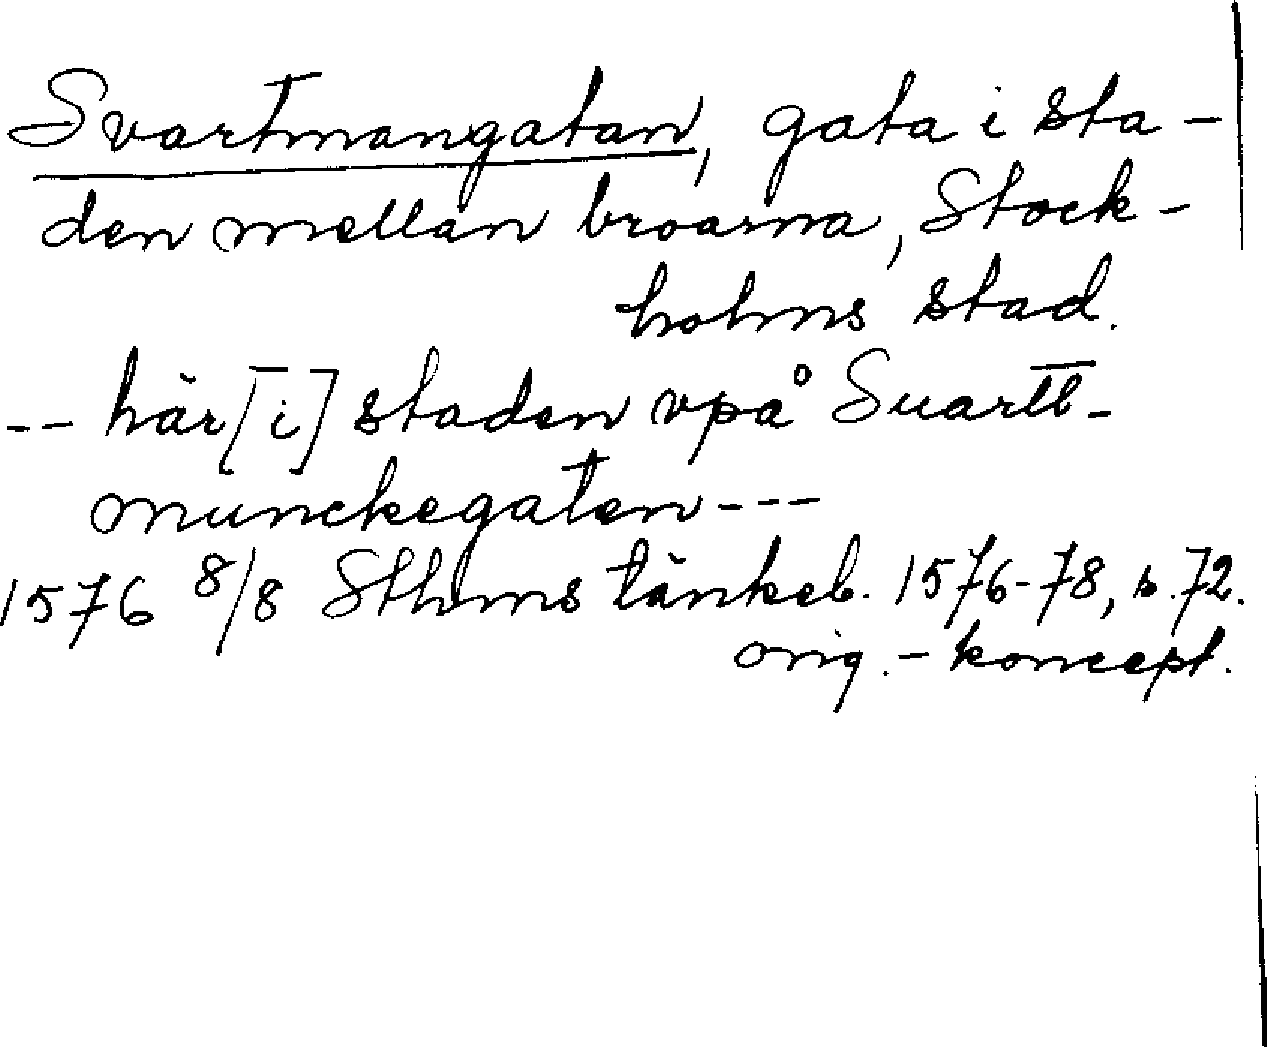 Svartmangatan, gata i sta-
den mellan broarna, Stock-
holms stad.
-- här [i] staden vpå Suartt-
munckegaten ---
1576 8/8 Sthms tänkeb. 1576-78, s. 72.
orig. - koncept.